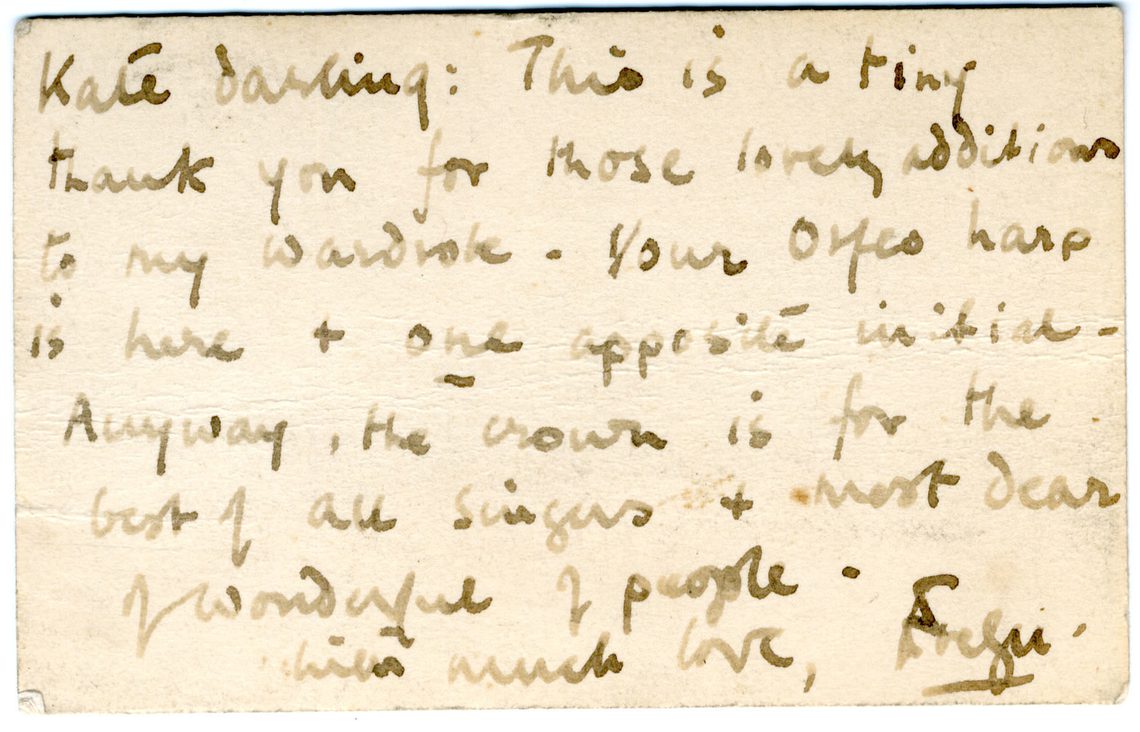 Kate darling: This is a tiny
thank you for those lovely additions
to my wardrobe - Your Orfeo harp
is here + one apposite initial -
Anyway, the crown is for the
best of all singers + most dear
of wonderful of people.
with much love,